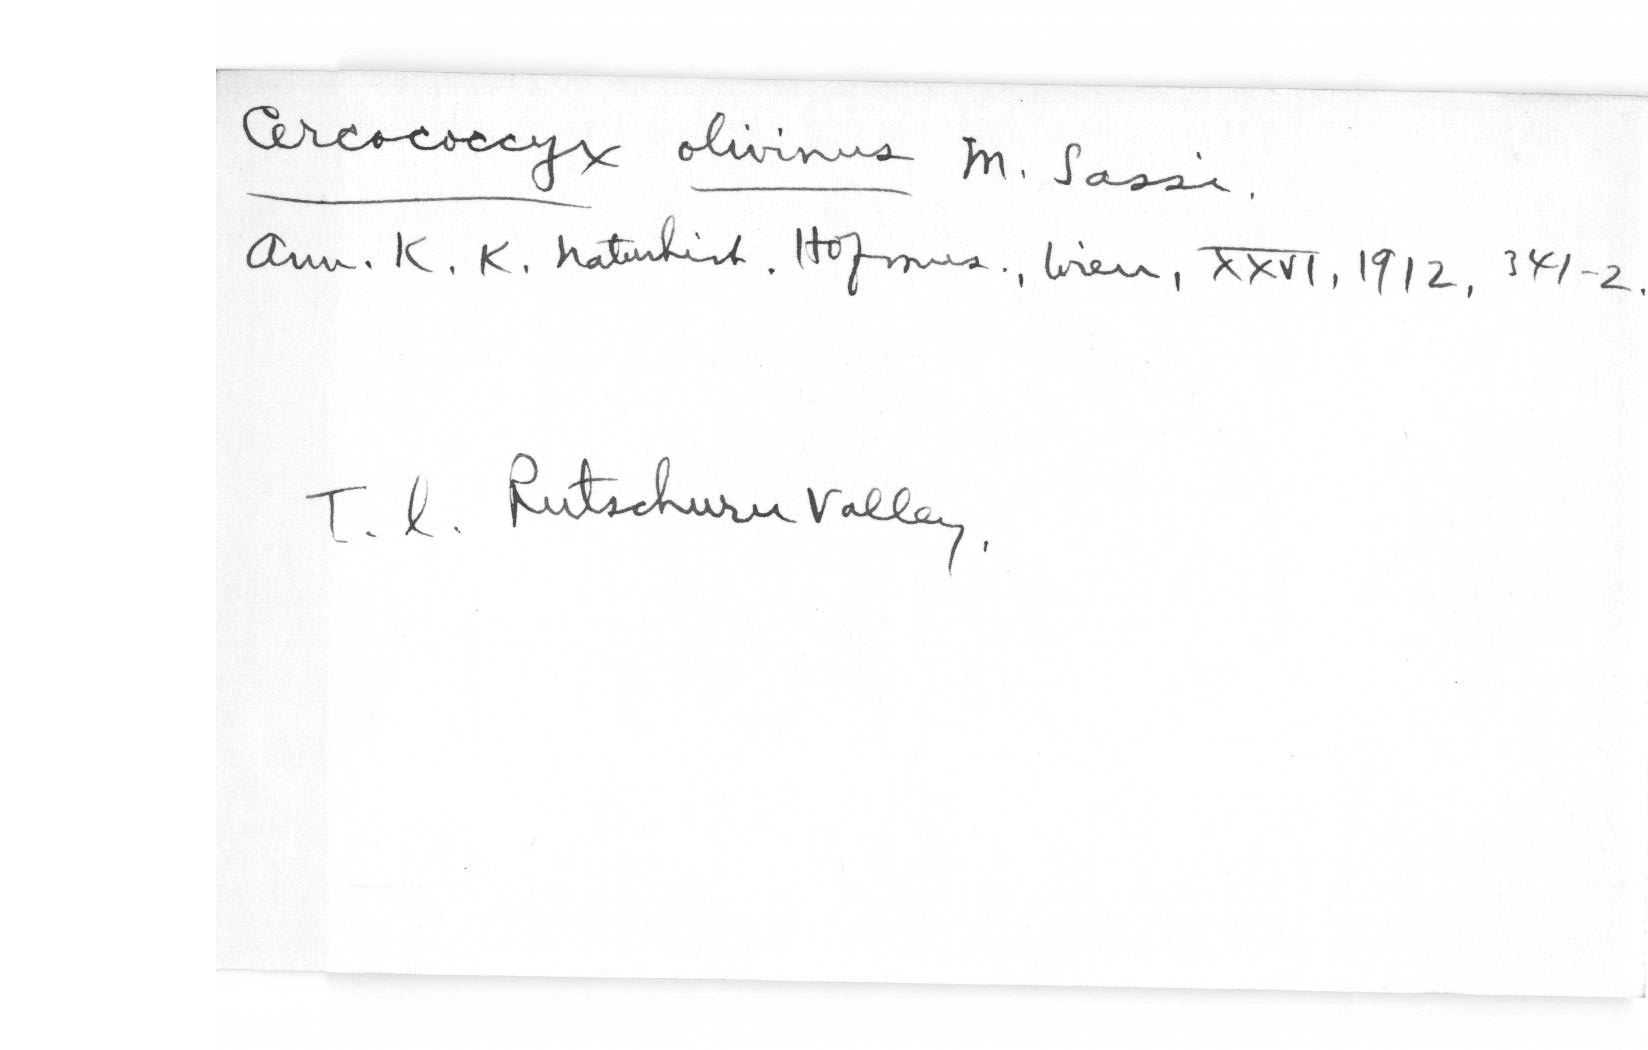 Cercococcyx olivinus M. Sassi.
Ann. K. K. Naturhist. Hofmus., Wien, XXVI, 1912, 341-2.
T. l. Rutschuru Valley.